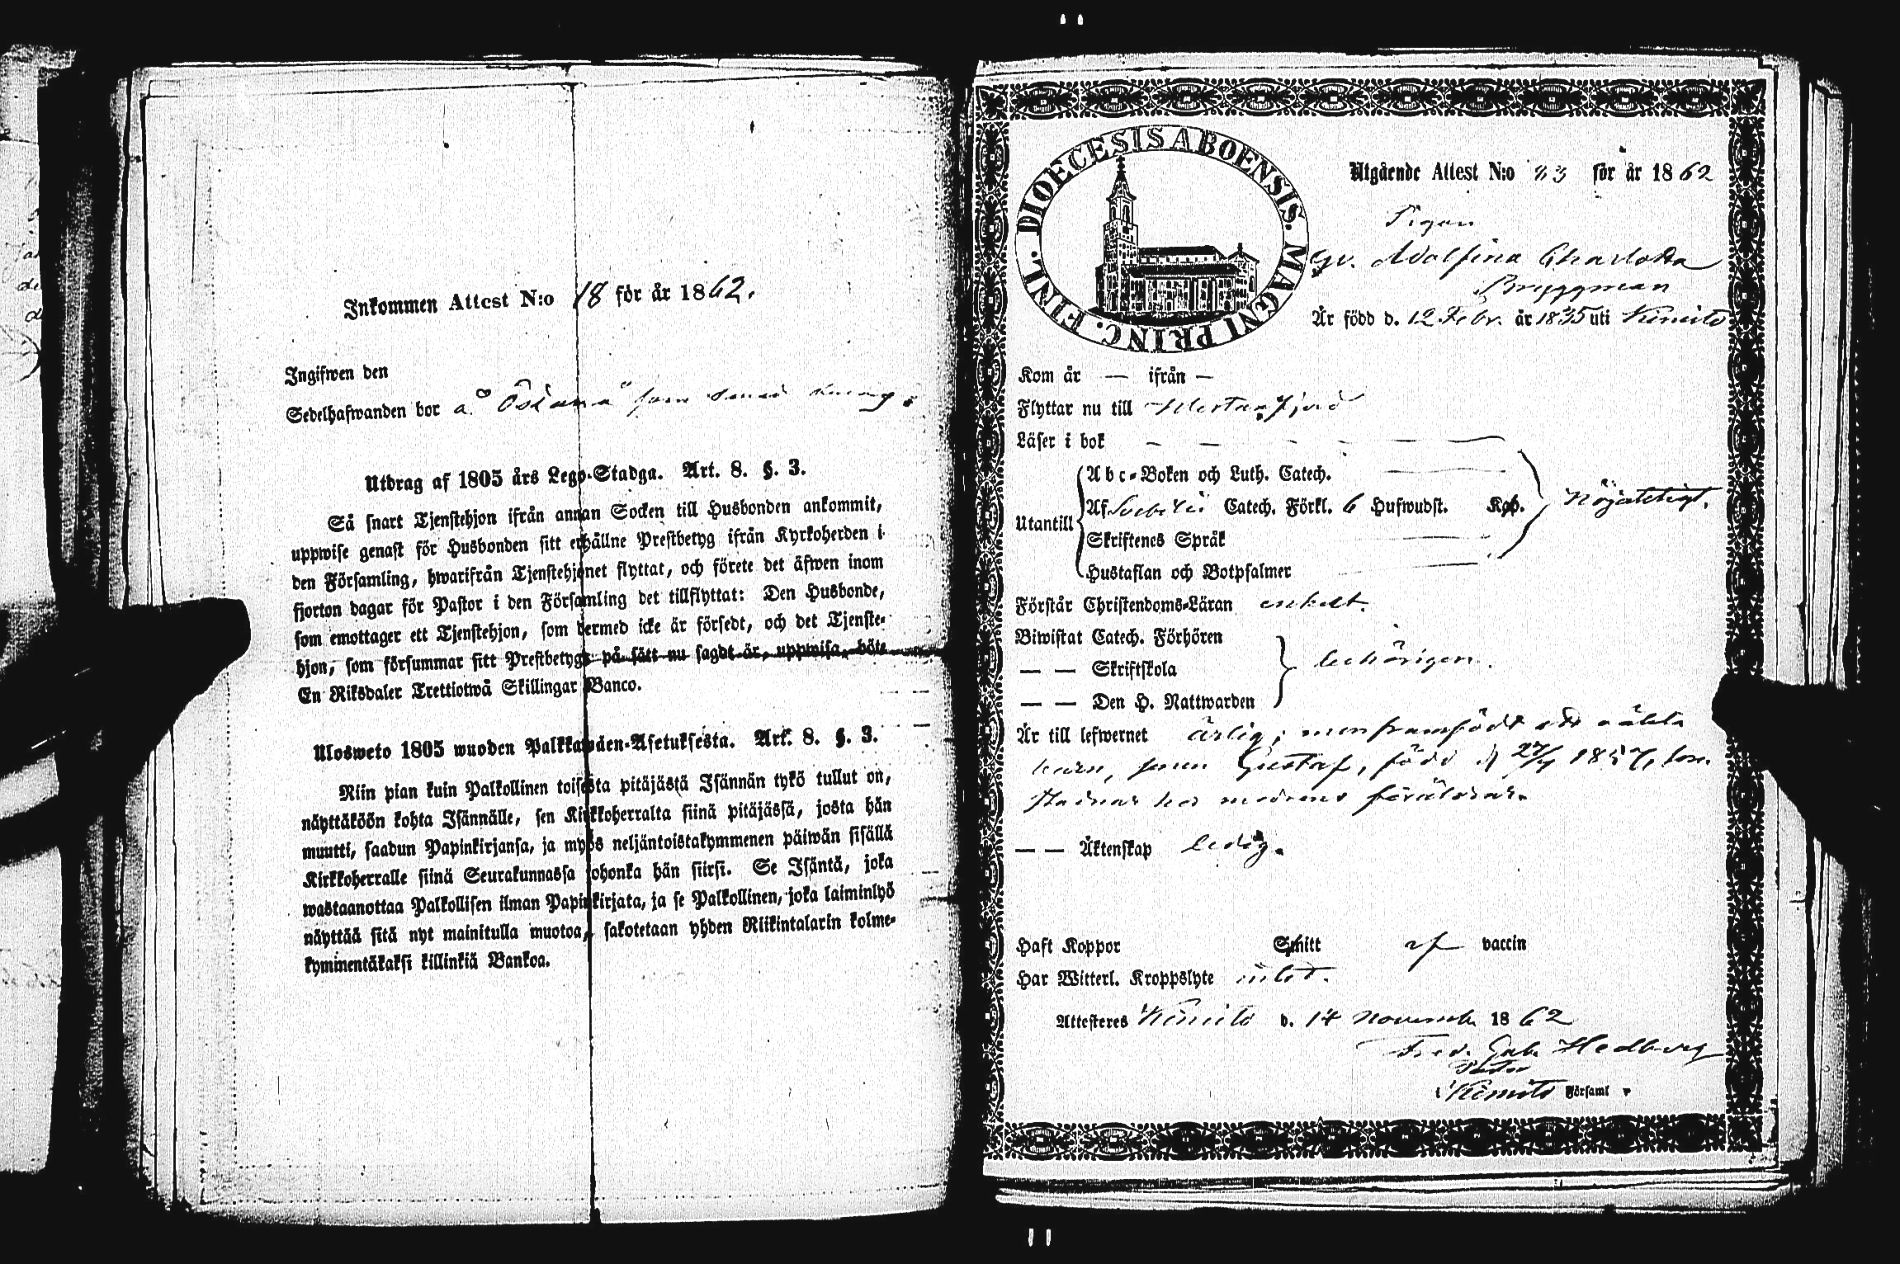 Inkommen Attest N:o 18 för år 1862.
Ingifwen den
Sedelhafwanden bor å "Östanå" som
Utdrag af 1805 års Lego-Stadga. Art. 8. §. 3.
Så snart Tjenstehjon ifrån annan Socken till Husbonden ankommit,
uppwise genast för Husbonden sitt erhållne Prestbetyg ifrån Kyrkoherden i
den Församling, hwarifrån Tjenstehjonet flyttat, och förete det äfwen inom
fjorton dagar för Pastor i den Församling det tillflyttat: Den Husbonde,
som emottager ett Tjenstehjon, som dermed icke är försedt, och det Tjenste-
hjon, som försummar sitt Prestbetyg på sätt nu sagdt är, uppwisa, böte
En Riksdaler Trettiotwå Skillingar Banco.
Ulosweto 1805 wuoden Palkkawäen-Asetuksesta. Art. 8. §. 3.
Niin pian kuin Palkollinen toisesta pitäjästä Isännän tykö tullut on,
näyttäköön kohta Isännälle, sen Kirkkoherralta siinä pitäjässä, josta hän
muutti, saadun Papinkirjansa, ja myös neljäntoistakymmenen päiwän sisällä
Kirkkoherralle siinä Seurakunnassa johonka hän siirsi. Se Isäntä, joka
wastaanottaa Palkollisen ilman Papinkirjata, ja se Palkollinen, joka laiminlyö
näyttää sitä nyt mainitulla muotoa, sakotetaan yhden Riikintalarin kolme-
kymmentäkaksi killinkiä Bankoa.
DIOECESIS ABOENSIS. MAGNI PRINC. FINL.
Utgående Attest N:o 83 för år 1862
Pigan
Adolfina Charlotta
Bryggman
Är född d. 12 Febr. år 1835 uti Kimito
Kom år — ifrån —
Flyttar nu till Westanfjerd
Läser i bok — — — — —
Utantill
Abc-Boken och Luth. Catech.
Af Svebilii Catech. Förkl. 6 Hufwudst. Kap.
Nöjaktigt.
Skriftenes Språk
Hustaflan och Botpsalmer
Förstår Christendoms-Läran enkelt.
Biwistat Catech. Förhören
— — Skriftskola
behörigen.
— — Den H. Nattwarden
Är till lefwernet ärlig; men framfödt ett oäkta
barn, sonen Gustaf, född d 27/4 1857, som
hos modrens föräldrar.
— — Äktenskap ledig.
Haft Koppor Smitt af vaccin
Har Witterl. Kroppslyte intet.
Attesteres Kimito d. 14 November 1862
Fred. Gab. Hedberg
Pastor
i Kimito Församl